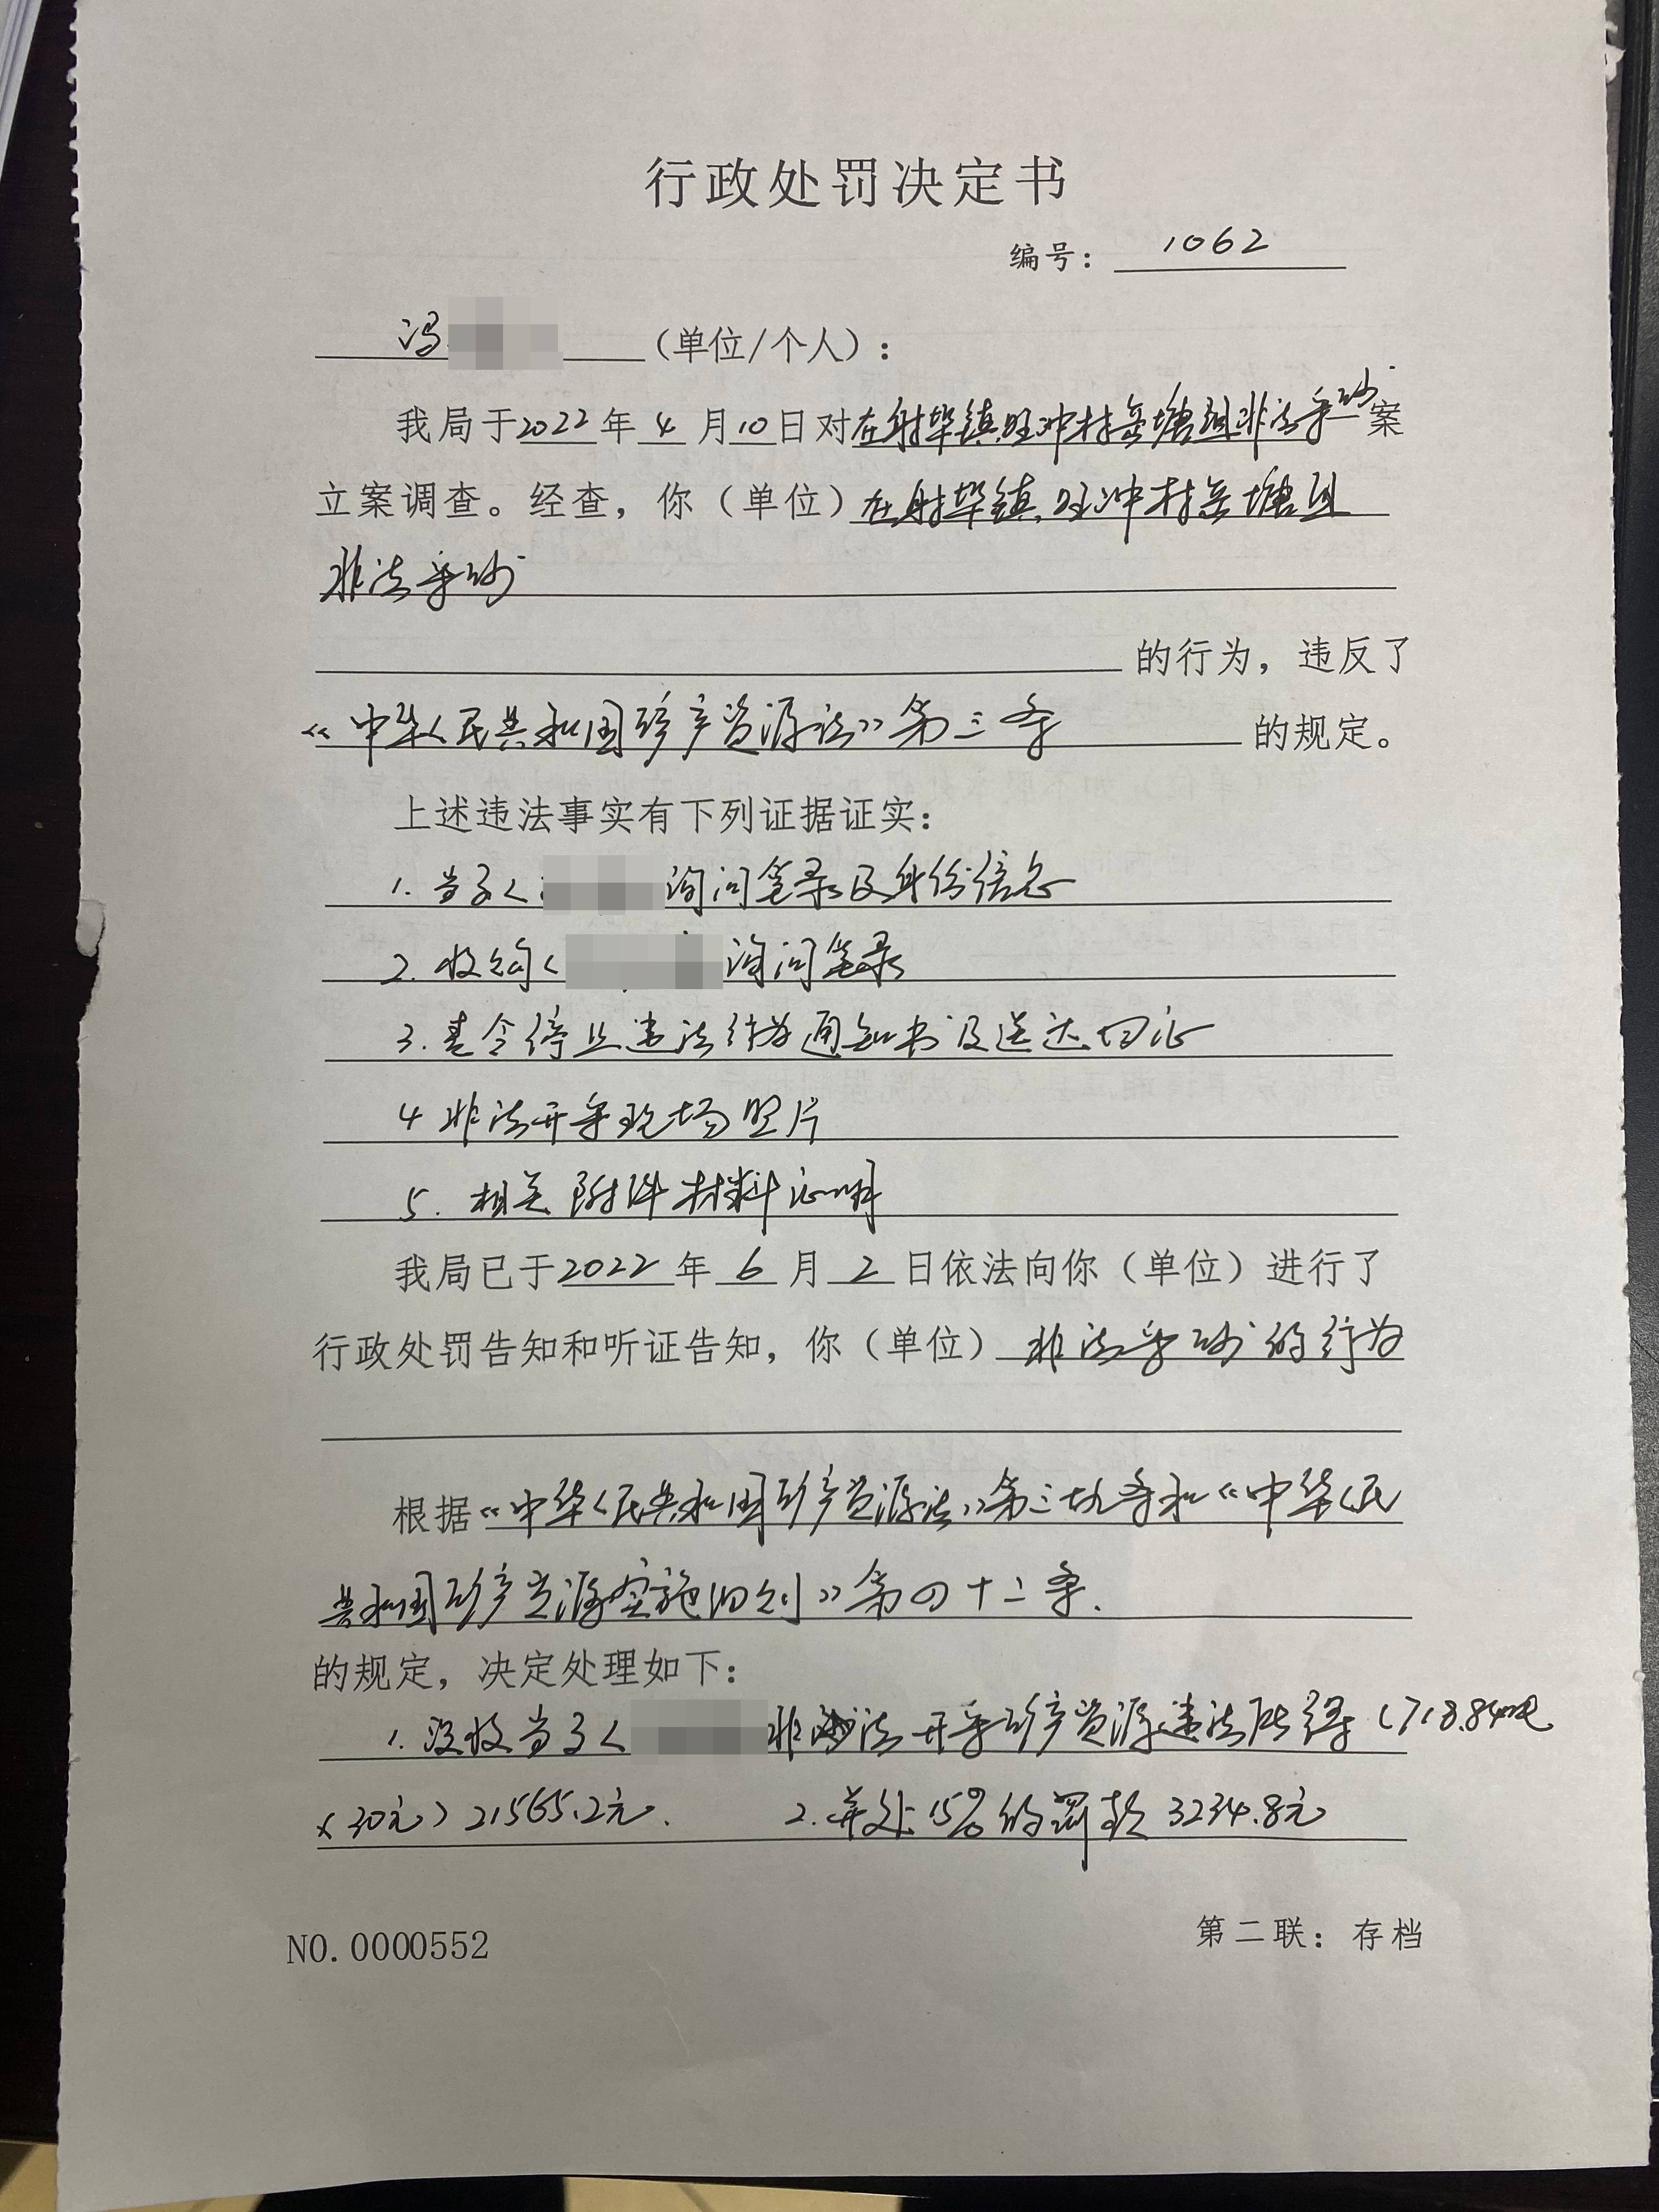 行政处罚决定书
编号：1062
冯（单位/个人）：
我局于2022年4月10日对在射埠镇旺冲村岳塘组非法采砂案
立案调查。经查，你（单位）在射埠镇旺冲村岳塘组
非法采砂
的行为，违反了
《中华人民共和国矿产资源法》第三条的规定。
上述违法事实有下列证据证实：
1.当事人询问笔录及身份信息
2.收购人询问笔录
3.责令停止违法行为通知书及送达回证
4 非法开采现场照片
5.相关附件材料证明
我局已于2022年6月2日依法向你（单位）进行了
行政处罚告知和听证告知，你（单位）非法采砂的行为
根据《中华人民共和国矿产资源法》第三十九条和《中华人民
共和国矿产资源实施细则》第四十二条.
的规定，决定处理如下：
1.没收当事人非法开采矿产资源违法所得（718.84吨
×30元）21565.2元. 2.并处15%的罚款3234.8元
NO.0000552
第二联：存档